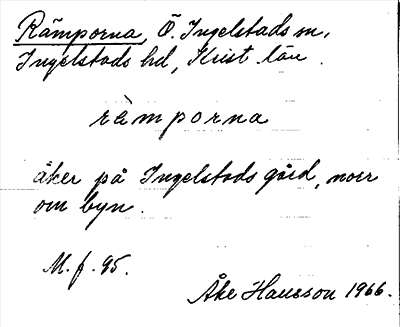 Rämporna, Ö. Ingelstads sn,
Ingelstads hd, Krist. län.
rämporna
åker på Ingelstads gård, norr
om byn.
M. f. 95.
Åke Hansson 1966.